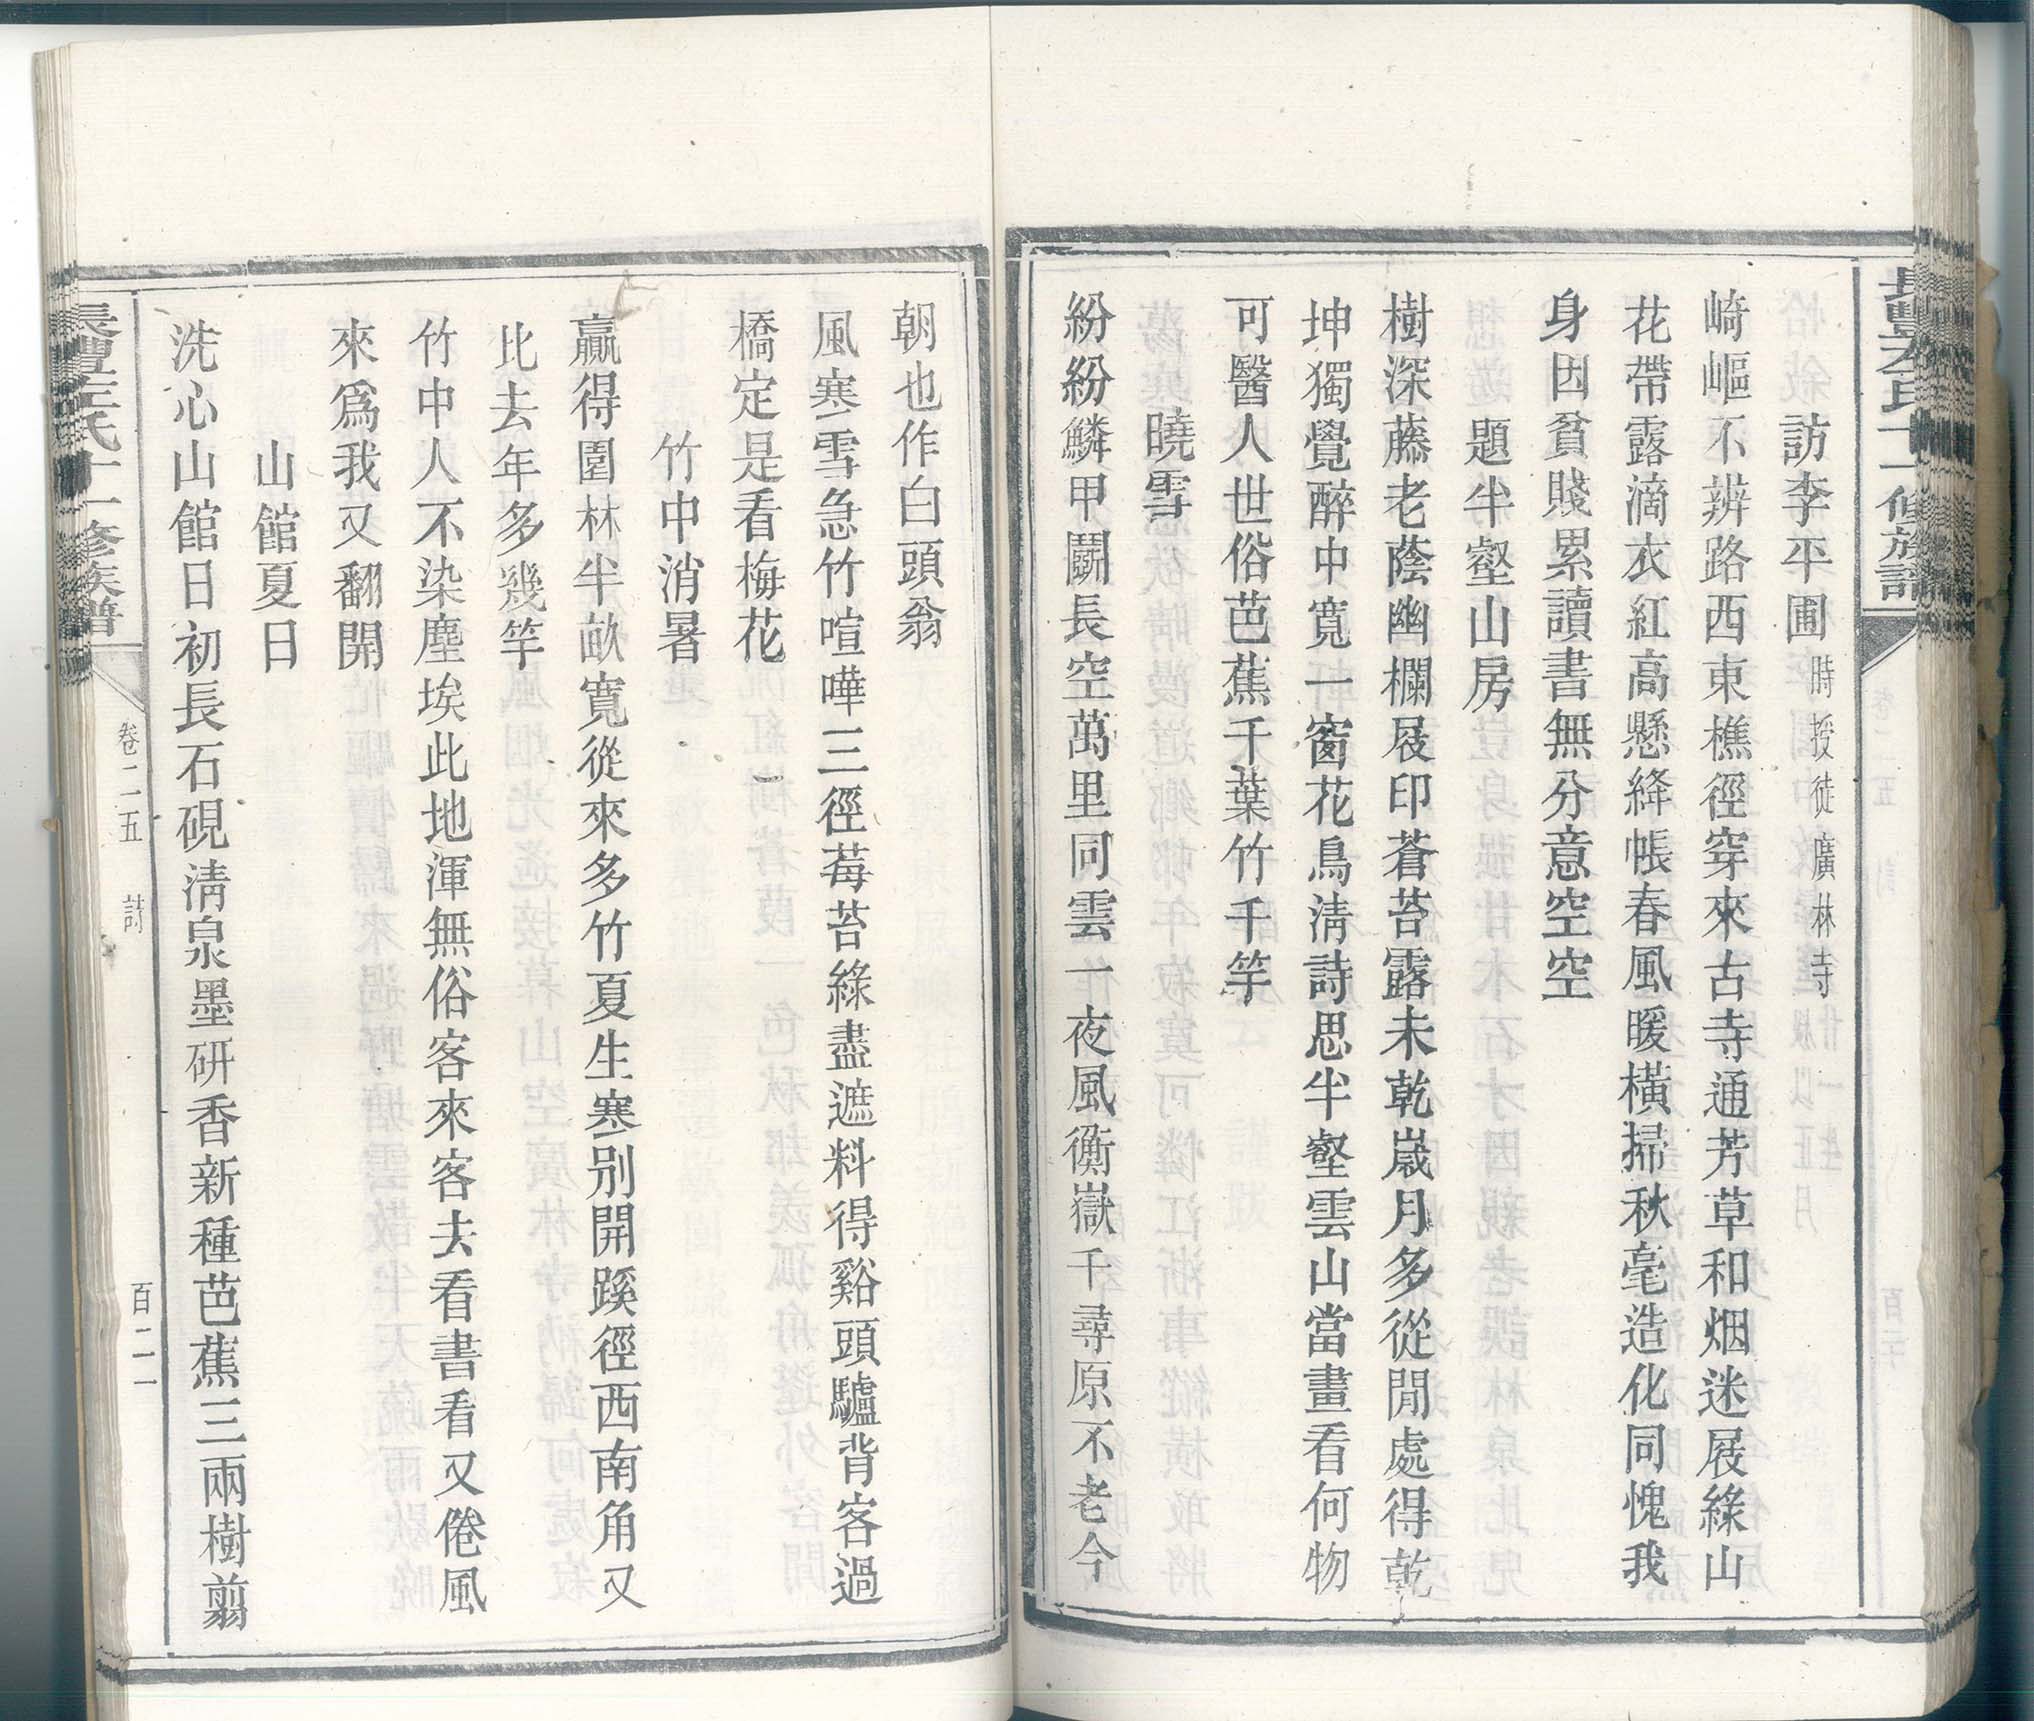 訪李平圃時授徒廣林寺
崎嶇不辨路西東樵徑穿來古寺通芳草和烟迷屐綠山
花帶露滴衣紅高懸絳帳春風暖橫掃秋毫造化同愧我
身因貧賤累讀書無分意空空
題半壑山房
樹深藤老蔭幽欄屐印蒼苔露未乾歲月多從閒處得乾
坤獨覺醉中寬一窗花鳥淸詩思半壑雲山當畫看何物
可醫人世俗芭蕉千葉竹千竿
曉雪
紛紛鱗甲鬭長空萬里同雲一夜風衡嶽千尋原不老今
朝也作白頭翁
風寒雪急竹喧嘩三徑莓苔綠盡遮料得谿頭驢背客過
橋定是看梅花
竹中消暑
贏得園林半畝寬從來多竹夏生寒別開蹊徑西南角又
比去年多幾竿
竹中人不染塵埃此地渾無俗客來客去看書看又倦風
來爲我又翻開
山館夏日
洗心山館日初長石硯淸泉墨研香新種芭蕉三兩樹翦
長豐左氏十一修族譜
卷二五
詩
百二一